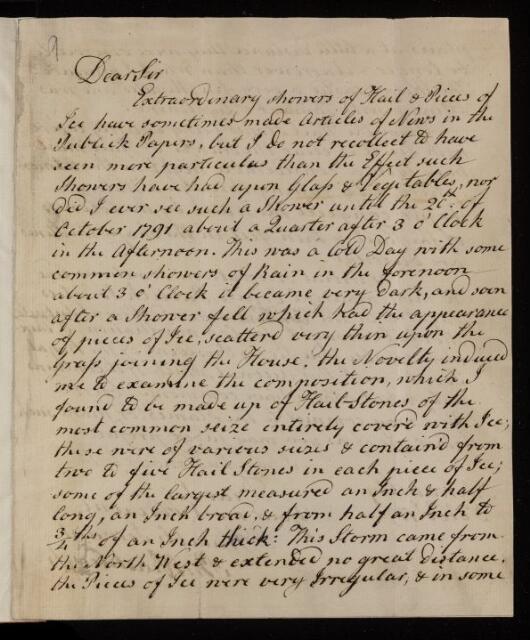 9
Dear Sir
Extraordinary showers of Hail & Pieces of
Ice have sometimes made Articles of News in the
Publick Papers, but I do not recollect to have
seen more particulas than the Effect such
Showers have had upon Glaſs & Vegetables, nor
did I ever see such a Shower until the 20th. of
October 1791 about a Quarter after 3 o' Clock
in the Afternoon. This was a Cold Day with some
common showers of Rain in the forenoon
about 3 o' Clock it became very dark, and soon
after a Shower fell which had the appearance
of pieces of Ice, scatterd very thin upon the
Graſs joining the House. the Novelty induced
me to examine the composition, which I
found to be made up of Hail-Stones of the
most common seize entirely coverd with Ice;
these were of various seizes & contain'd from
two to five Hail Stones in each piece of Ice;
some of the largest measured an Inch & half
long, an Inch broad, & from half an Inch to
3/4ths of an Inch thick: This Storm came from
the North West & extended no great distance.
the Pieces of Ice were very Irregular, & in some